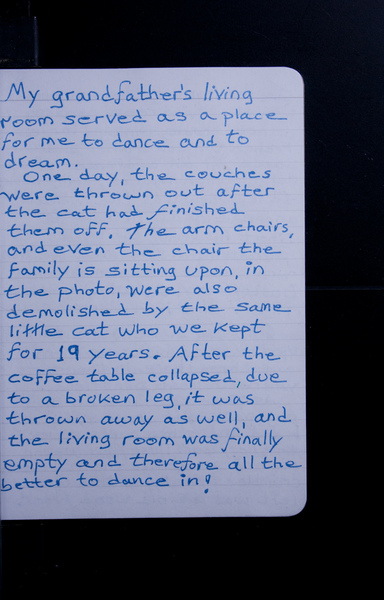 My grandfather's living
room served as a place
for me to dance and to
dream.
One day, the couches
were thrown out after
the cat had finished
them off. The arm chairs,
and even the chair the
family is sitting upon, in
the photo, were also
demolished by the same
little cat who we kept
for 19 years. After the
coffee table collapsed, due
to a broken leg, it was
thrown away as well, and
the living room was finally
empty and therefore all the
better to dance in!